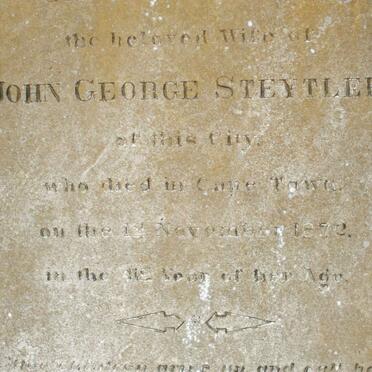 the beloved Wife of
JOHN GEORGE STEYTLER
of this City,
who died in Cape Town,
on the 12 November 1872,
in the Year of her Age.
up and call